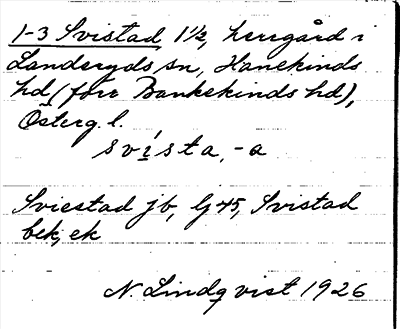 1-3 Svistad, 1½, herrgård i
Landeryds sn, Hanekinds
hd (förr Bankekinds hd),
Österg. l.
svista, -a
Sviestad jb, lg 45, Svistad
bek, ek
N. Lindqvist 1926